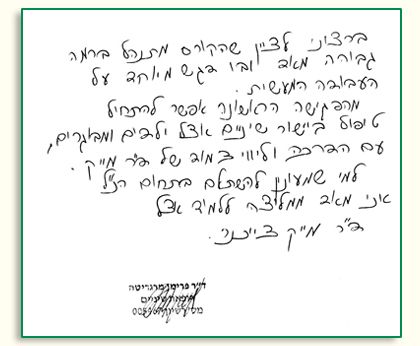 ברצוני לציין שהקורס מתנהל ברמה
גבוהה מאוד ובו דגש מיוחד על
העבודה המעשית.
מהפגישה הראשונה אפשר להתחיל
טיפול ביישור שיניים אצל ילדים ומבוגרים,
עם הדרכה וליווי צמוד של ד״ר מייק.
למי שמעונין להשתלם בתחום הנ״ל
אני מאוד ממליצה ללמוד אצל
ד״ר מייק
ד״ר פרימן מרגריטה